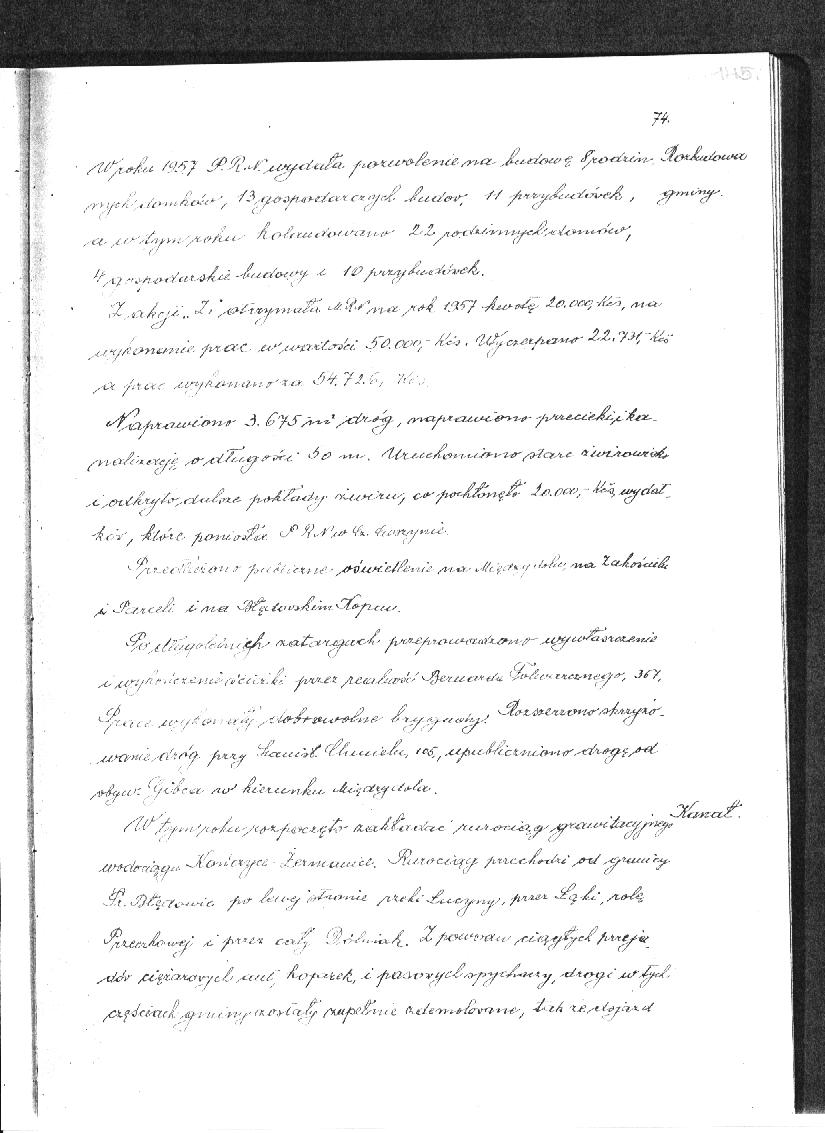 145.
74.
W roku 1957 P.R.N. wydała pozwolenie na budowę 8 rodzin Rozbudowa
nych domków, 13 gospodarczych budov, 11 przybudóvek, gminy.
a w tym roku kolaudowano 22 rodzinnych domów,
4 gospodarskie budowy i 10 przybudóvek.
Z akcji „Z" otrzymała MRN na rok 1957 kwotę 20.000,- Kčs, na
wykonanie prac w wartości 50.000,- Kčs. Wyczerpano 22.731,- Kčs
a prac wykonano za 54.726,- Kčs.
Naprawiono 3.675 m² dróg, naprawiono przecieki, i ka-
nalizację o długości 50 m. Uruchomiono stare żwirowisko
i odkryto dalsze pokłady żwiru, co pochłonęło 20.000,- Kčs, wydat-
kóv, które poniosła P.R.N. w Cz. Cieszynie.
Przedłużono publiczne oświetlenie na Międzydolu, na Zakościelu
i Parceli i na Błędovskim Kopcu.
Po długoletnich zatargach przeprowadzono wywłaszczenie
i wykończenie ścieżki przez realność Bernarda Folwarcznego, 367,
Prace wykonały dobrowolne brygady. Rozszerzono skrzyżo-
wanie dróg przy Stanisł. Chmielu, 105, upubliczniono drogę od
obyw. Gibca w kierunku Międzydola.
W tym roku rozpoczęto zakładać rurociąg grawitacyjnego Kanał.
wodociągu Kończyce - Żermanice. Rurociąg przechodzi od granicy
Pr. Błędowic po lewej stronie rzeki Łucyny, przez Łąki, rolę
i przez cały Dólniak. Z powodu ciągłych przeja
dóv ciężarovych aut, koparek, i pasovych spychaczy, drogi w tych
częściach gminy zostały zupełnie zdemolovane, tak że dojazd